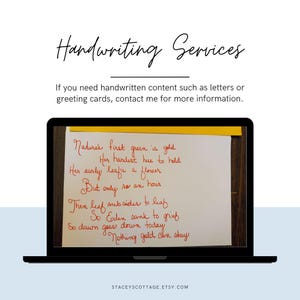 Handwriting Services
If you need handwritten content such as letters or
greeting cards, contact me for more information.
Nature's first green is gold
Her hardest hue to hold
Her early leafs a flower
But only so an hour
Then leaf subsides to leaf
So Eden sank to grief
So dawn goes down today
Nothing gold can stay
STACEYSCOTTAGE.ETSY.COM